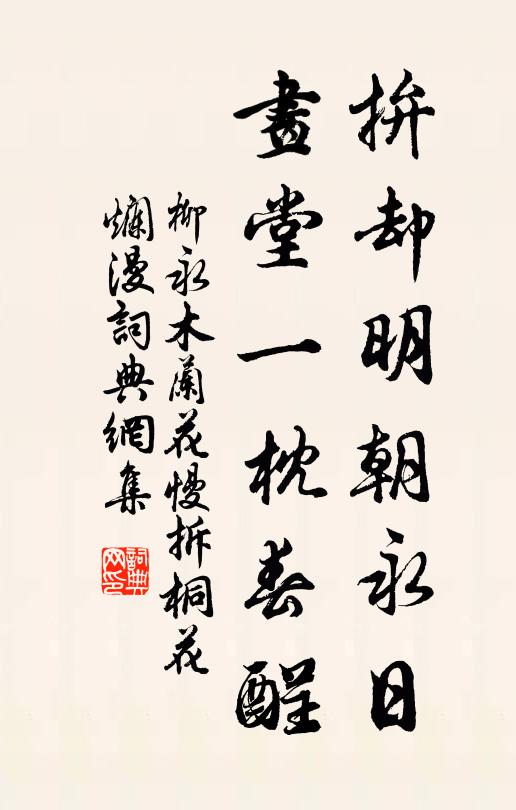 拚却明朝永日
畫堂一枕春酲
柳永木蘭花慢拆桐花
爛漫詞典網集
詞典网印